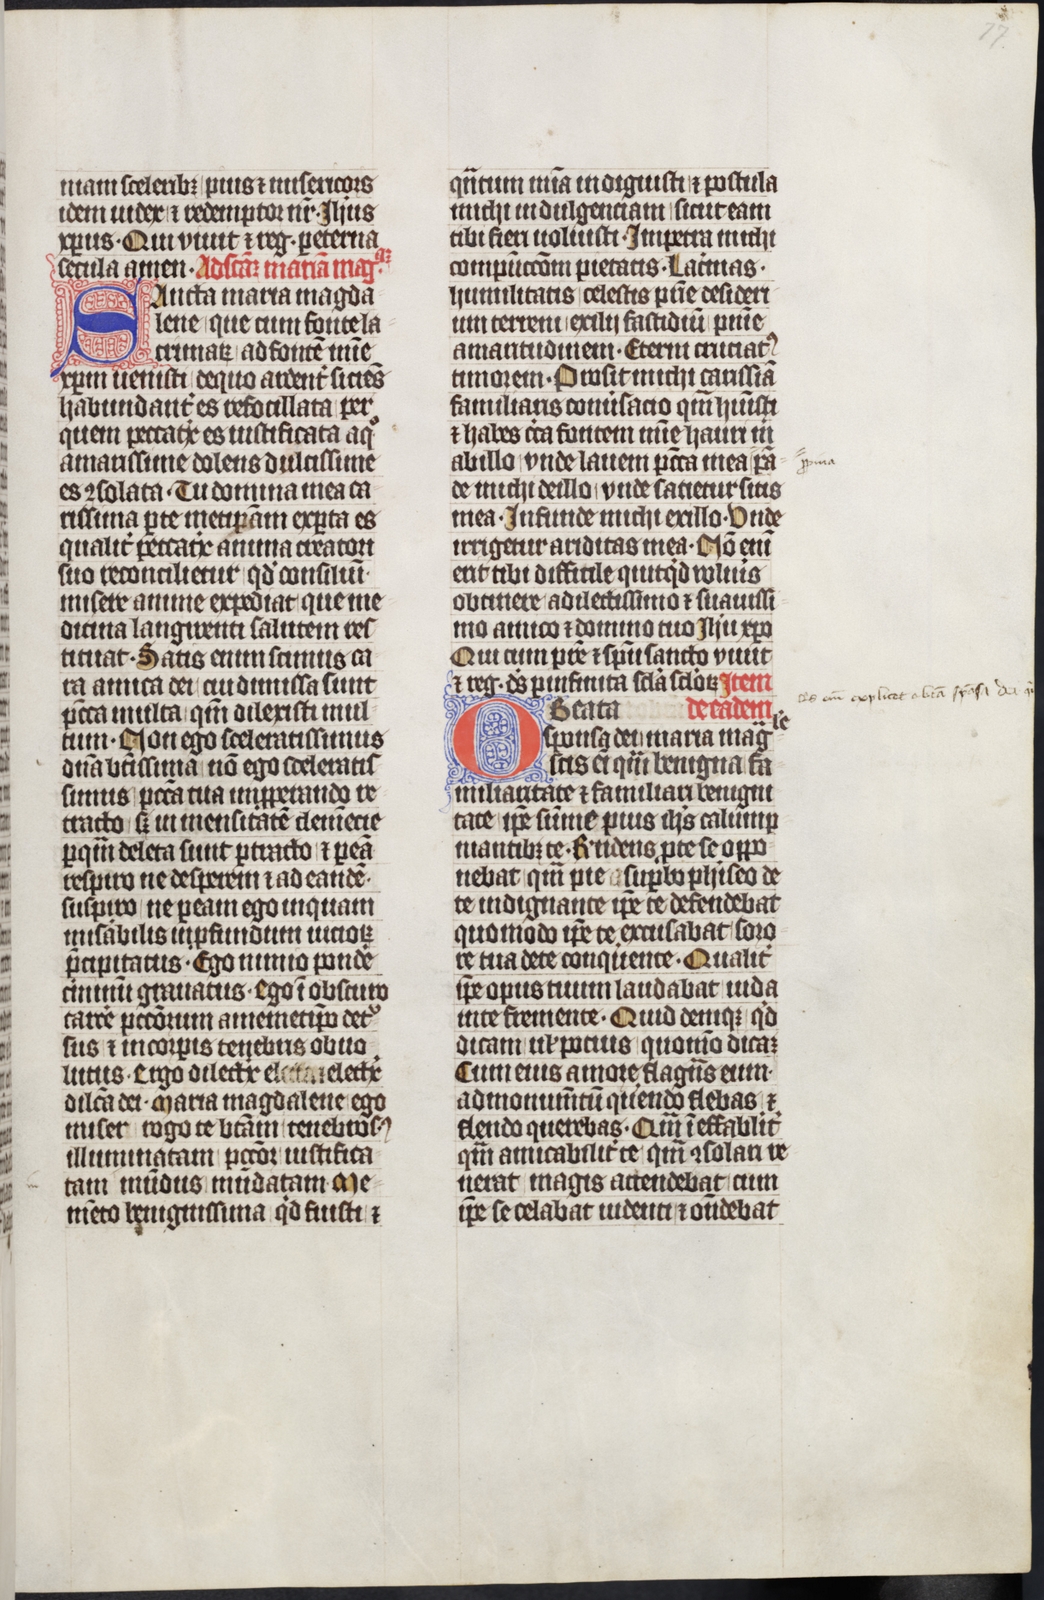 77
niam sceleribꝫ pius ⁊ misericors
idem iudex ⁊ redemptor nr̄. Ih̄us
xp̄us. Qui viuit ⁊ reg. p̱eterna
secula amen. Ad sc̄aꝫ mariā mag.
Sancta maria magda
lene que cum fonte la
crimaꝝ ad fontē mīe
xp̄m uenisti de quo ardent̾ siciēs
habundant̾ es refocillata per
quem peccat̾x es iustificata a q̊
amarissime dolens dulcissime
es ꝯsolata. Tu domina mea ca
rissima p̱ te metip̄am exp̱ta es
qualit̾ peccat̾x anima creatori
suo reconcilietur qd̾ consiliū
misere anime expediat que me
dicina languenti salutem res
tituat. Satis enim scimus ca
ra amica dei cui dimissa sunt
pc̄ca multa qm̄ dilexisti mul
tum. Non ego sceleratissimus
dn̄a bt̄issima nō ego sceleratis
simus pc̄ca tua imꝓperando re
tracto sꝫ in mensitatē clemēcie
p̱ quā deleta sunt p̱tracto ⁊ p̱ eā
respiro ne desperem ⁊ ad eandē
suspiro ne p̱eam ego inquam
mis̾abilis in ꝓfundum uicioꝝ
p̄cipitatus. Ego nimio pond̾e
c̾minū grauatus. Ego ī obscuro
carc̾e pc̄c̄orum a memetip̄o det̾
sus ⁊ in corp̱is tenebris obuo
lutus. Ergo dilect̾x elect̾x
dilc̄a dei. Maria magdalene ego
miser rogo te bc̄am tenebrosꝯ
illuminatam pcc̄or iustifica
tam inmūdus mūdatam Me
mēto benignissima qd̾ fuisti ⁊
qn̄tum mīa indiguisti ⁊ postula
michi indulgenciam sicut eam
tibi fieri uoluisti. Impetra michi
compūcc̄om pietatis. Lac̾mas.
humilitatis celestis p̄īe desideri
um terreni exilij fastidiū p̄nīe
amaritudinem. Eterni cruciatꝯ
timorem. Prosit michi carissiā
familiaris conu̾sacio qm̄ hūisti
⁊ habes c̾ca fontem mīe hauri m̄
ab illo vnde lauem pc̄ca mea ꝓ̄ā
de michi de illo vnde satietur sitis
mea. Infunde michi ex illo. Vnde
irrigetur ariditas mea. Nō eni
erit tibi difficile quicqd̾ volu̾is
obtinere a dilectissimo ⁊ suauissi
mo amico ⁊ domino tuo Ih̄u xp̄o
Qui cum p̄re ⁊ sp̄u sancto viuit
⁊ reg. ds̄ p̱ infinita sc̄la sc̄loꝝ Item
O Beata de eadem
sponsa dei maria mag̾le
scis em̄ qm̄ benigna fa
miliaritate ⁊ familiari benigni
tate ip̄e sūme pius ihs̄ calūmp
niantibꝫ te. Rn̄dens p̱ te se oppo
nebat qm̄ pie sup̱bo ph̾iseo de
te indignante ip̄e te defendebat
quomodo ip̄e te excusabat soro
re tua de te conqu̾ente. Qualit̾
ip̄e opus tuum laudabat iuda
in te fremente. Quid deniqꝫ qd̾
dicam uł potius quomō dicaꝫ
Cum eius amore flagn̄s eum
ad monumn̄tū qu̾endo flebas ⁊
flendo querebas. Qm̄ īeffablit̾
qm̄ amicabilit̾ te qm̄ ꝯsolari ue
nerat magis accendebat cum
ip̄e se celabat uidenti ⁊ on̄debat